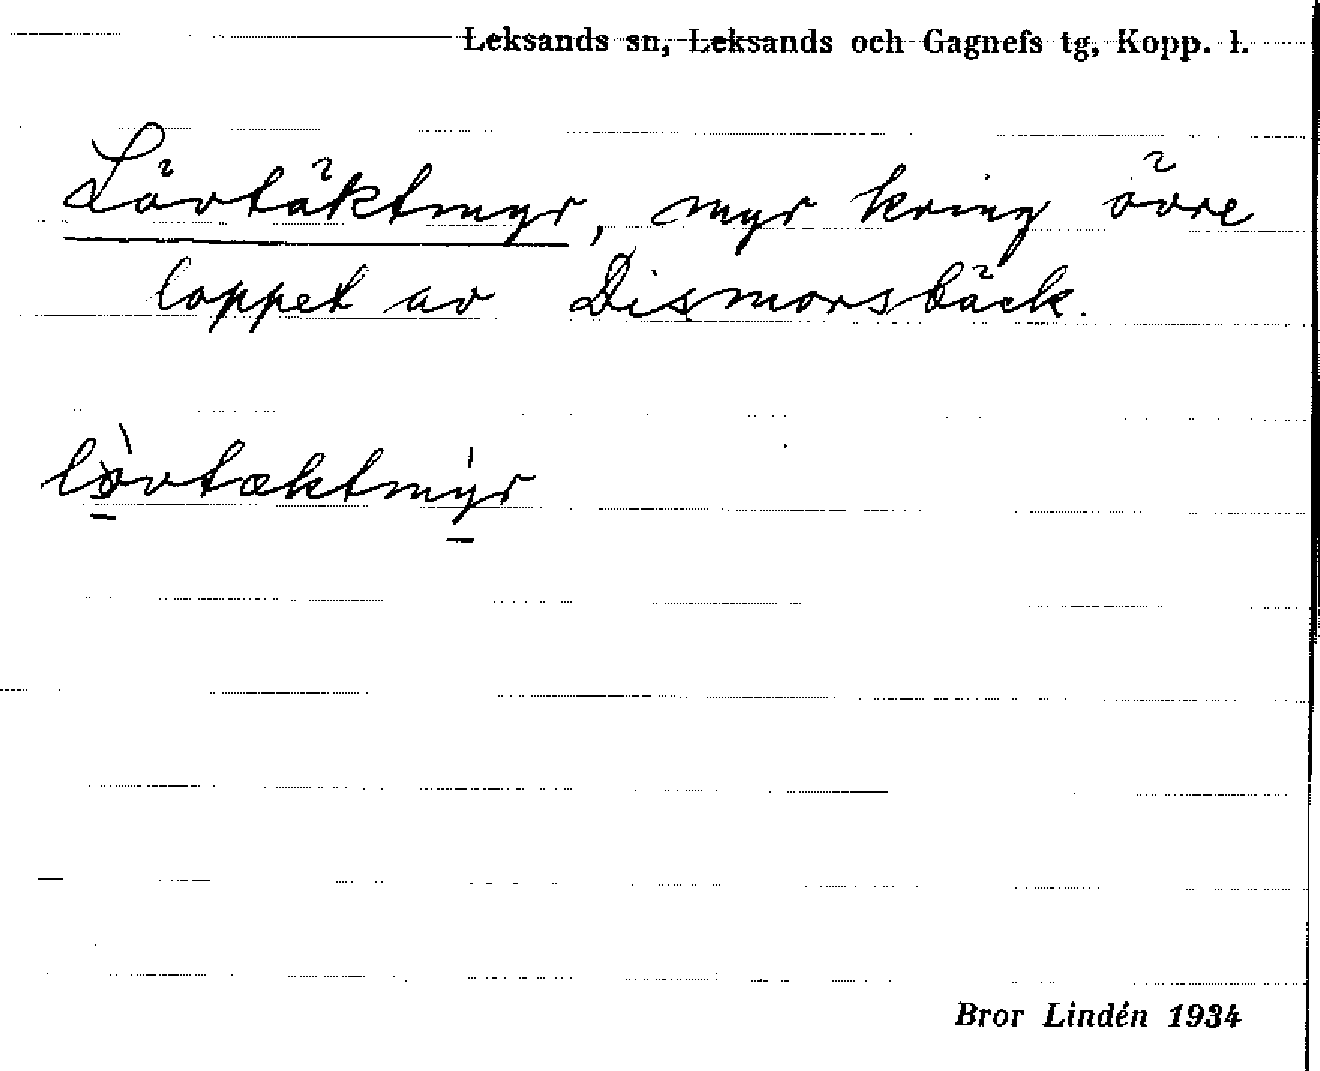 Leksands sn, Leksands och Gagnefs tg, Kopp. l.
Lövtäktmyr, myr kring övre
loppet av Dismorsbäck.
lòvtæktmýr
Bror Lindén 1934